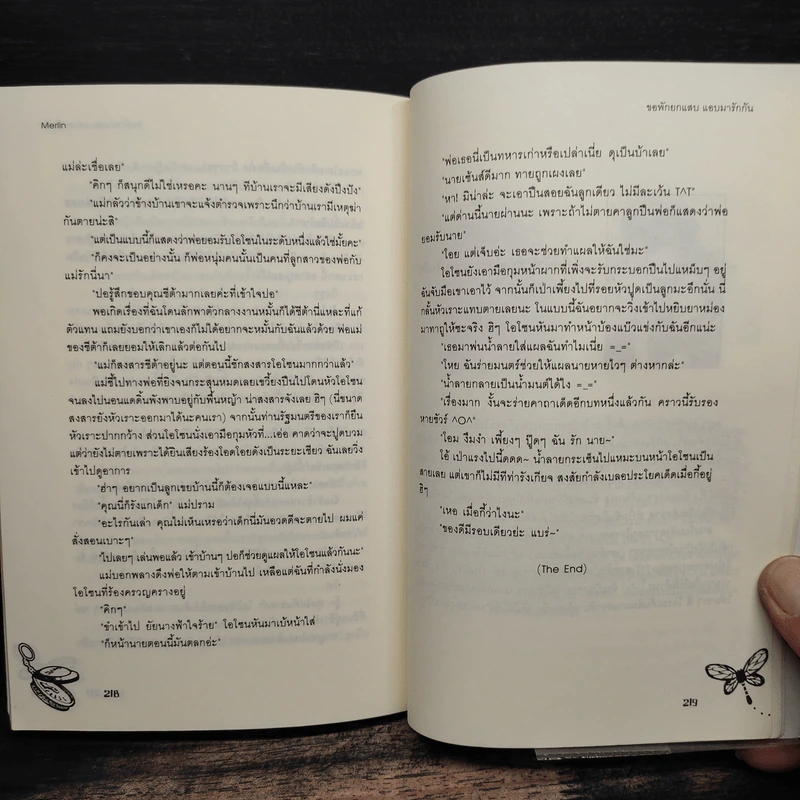 Merlin
แม่ล่ะเชื่อเลย"
"คิกๆ ก็สนุกดีไม่ใช่เหรอคะ นานๆ ทีบ้านเราจะมีเสียงดังปึงปัง"
"แม่กลัวว่าข้างบ้านเขาจะแจ้งตำรวจเพราะนึกว่าบ้านเรามีเหตุฆ่า
กันตายน่ะสิ"
"แต่เป็นแบบนี้ก็แสดงว่าพ่อยอมรับโอโซนในระดับหนึ่งแล้วใช่มั้ยคะ"
"ก็คงจะเป็นอย่างนั้น ก็พ่อหนุ่มคนนั้นเป็นคนที่ลูกสาวของพ่อกับ
แม่รักนี่นา"
"ปอรู้สึกขอบคุณซีต้ามากเลยค่ะที่เข้าใจปอ"
พอเกิดเรื่องที่ฉันโดนลักพาตัวกลางงานหมั้นก็ได้ซีต้านี่แหละที่แก้
ตัวแทน แถมยังบอกว่าเขาเองก็ไม่ได้อยากจะหมั้นกับฉันแล้วด้วย พ่อแม่
ของซีต้าก็เลยยอมให้เลิกแล้วต่อกันไป
"แม่ก็สงสารซีต้าอยู่นะ แต่ตอนนี้ชักสงสารโอโซนมากกว่าแล้ว"
แม่ชี้ไปทางพ่อที่ยิงจนกระสุนหมดเลยเขวี้ยงปืนไปโดนหัวโอโซน
จนลงไปนอนแดดิ้นพังพาบอยู่กับพื้นหญ้า น่าสงสารจังเลย ฮิๆ (นี่ขนาด
สงสารยังหัวเราะออกมาได้นะคนเรา) จากนั้นท่านรัฐมนตรีของเราก็ยืน
หัวเราะปากกว้าง ส่วนโอโซนนั่งเอามือกุมหัวที่...เอ่อ คาดว่าจะปูดบวม
แต่ว่ายังไม่ตายเพราะได้ยินเสียงร้องโอดโอยดังเป็นระยะเชียว ฉันเลยวิ่ง
เข้าไปดูอาการ
"ฮ่าๆ อยากเป็นลูกเขยบ้านนี้ก็ต้องเจอแบบนี้แหละ"
"คุณนี่ก็รังแกเด็ก" แม่ปราม
"อะไรกันเล่า คุณไม่เห็นเหรอว่าเด็กนี่มันอวดดีจะตายไป ผมแค่
สั่งสอนเบาะๆ"
"ไปเลยๆ เล่นพอแล้ว เข้าบ้านๆ ปอก็ช่วยดูแผลให้โอโซนแล้วกันนะ"
แม่บอกพลางดึงพ่อให้ตามเข้าบ้านไป เหลือแต่ฉันที่กำลังนั่งมอง
โอโซนที่ร้องครวญครางอยู่
"คิกๆ"
"ขำเข้าไป ยัยนางฟ้าใจร้าย" โอโซนหันมาเบ้หน้าใส่
"ก็หน้านายตอนนี้มันตลกอ่ะ"
218
ขอพักยกแสบ แอบมารักกัน
"พ่อเธอนี่เป็นทหารเก่าหรือเปล่าเนี่ย ดุเป็นบ้าเลย"
"นายเซ้นส์ดีมาก ทายถูกเผงเลย"
"หา! มิน่าล่ะ จะเอาปืนสอยฉันลูกเดียว ไม่มีละเว้น T^T"
"แต่ด่านนี้นายผ่านนะ เพราะถ้าไม่ตายคาลูกปืนพ่อก็แสดงว่าพ่อ
ยอมรับนาย"
"โอย แต่เจ็บอ่ะ เธอจะช่วยทำแผลให้ฉันใช่มะ"
โอโซนยังเอามือกุมหน้าผากที่เพิ่งจะรับกระบอกปืนไปแหม็บๆ อยู่
ฉันจับมือเขาเอาไว้ จากนั้นก็เป่าเพี้ยงไปที่รอยหัวปูดเป็นลูกมะอึกนั่น นี่
กลั้นหัวเราะแทบตายเลยนะ ในแบบนี้ฉันอยากจะวิ่งเข้าไปหยิบยาหม่อง
มาทาถูให้ซะจริง ฮิๆ โอโซนหันมาทำหน้าบ้องแบ๊วแข่งกับฉันอีกแน่ะ
"เธอมาพ่นน้ำลายใส่แผลฉันทำไมเนี่ย =_="
"โหย ฉันร่ายมนตร์ช่วยให้แผลนายหายไวๆ ต่างหากล่ะ"
"น้ำลายกลายเป็นน้ำมนต์ได้ไง =_="
"เรื่องมาก งั้นจะร่ายคาถาเด็ดอีกบทหนึ่งแล้วกัน คราวนี้รับรอง
หายชัวร์ ^O^"
"โอม งึมงำ เพี้ยงๆ ปู๊ดๆ ฉัน รัก นาย~"
โอ้ เป่าแรงไปนี้ดดด~ น้ำลายกระเซ็นไปแหมะบนหน้าโอโซนเป็น
สายเลย แต่เขาก็ไม่มีทีท่ารังเกียจ สงสัยกำลังเบลอประโยคเด็ดเมื่อกี้อยู่
ฮิๆ
"เหอ เมื่อกี้ว่าไงนะ"
"ของดีมีรอบเดียวย่ะ แบร่~"
(The End)
219